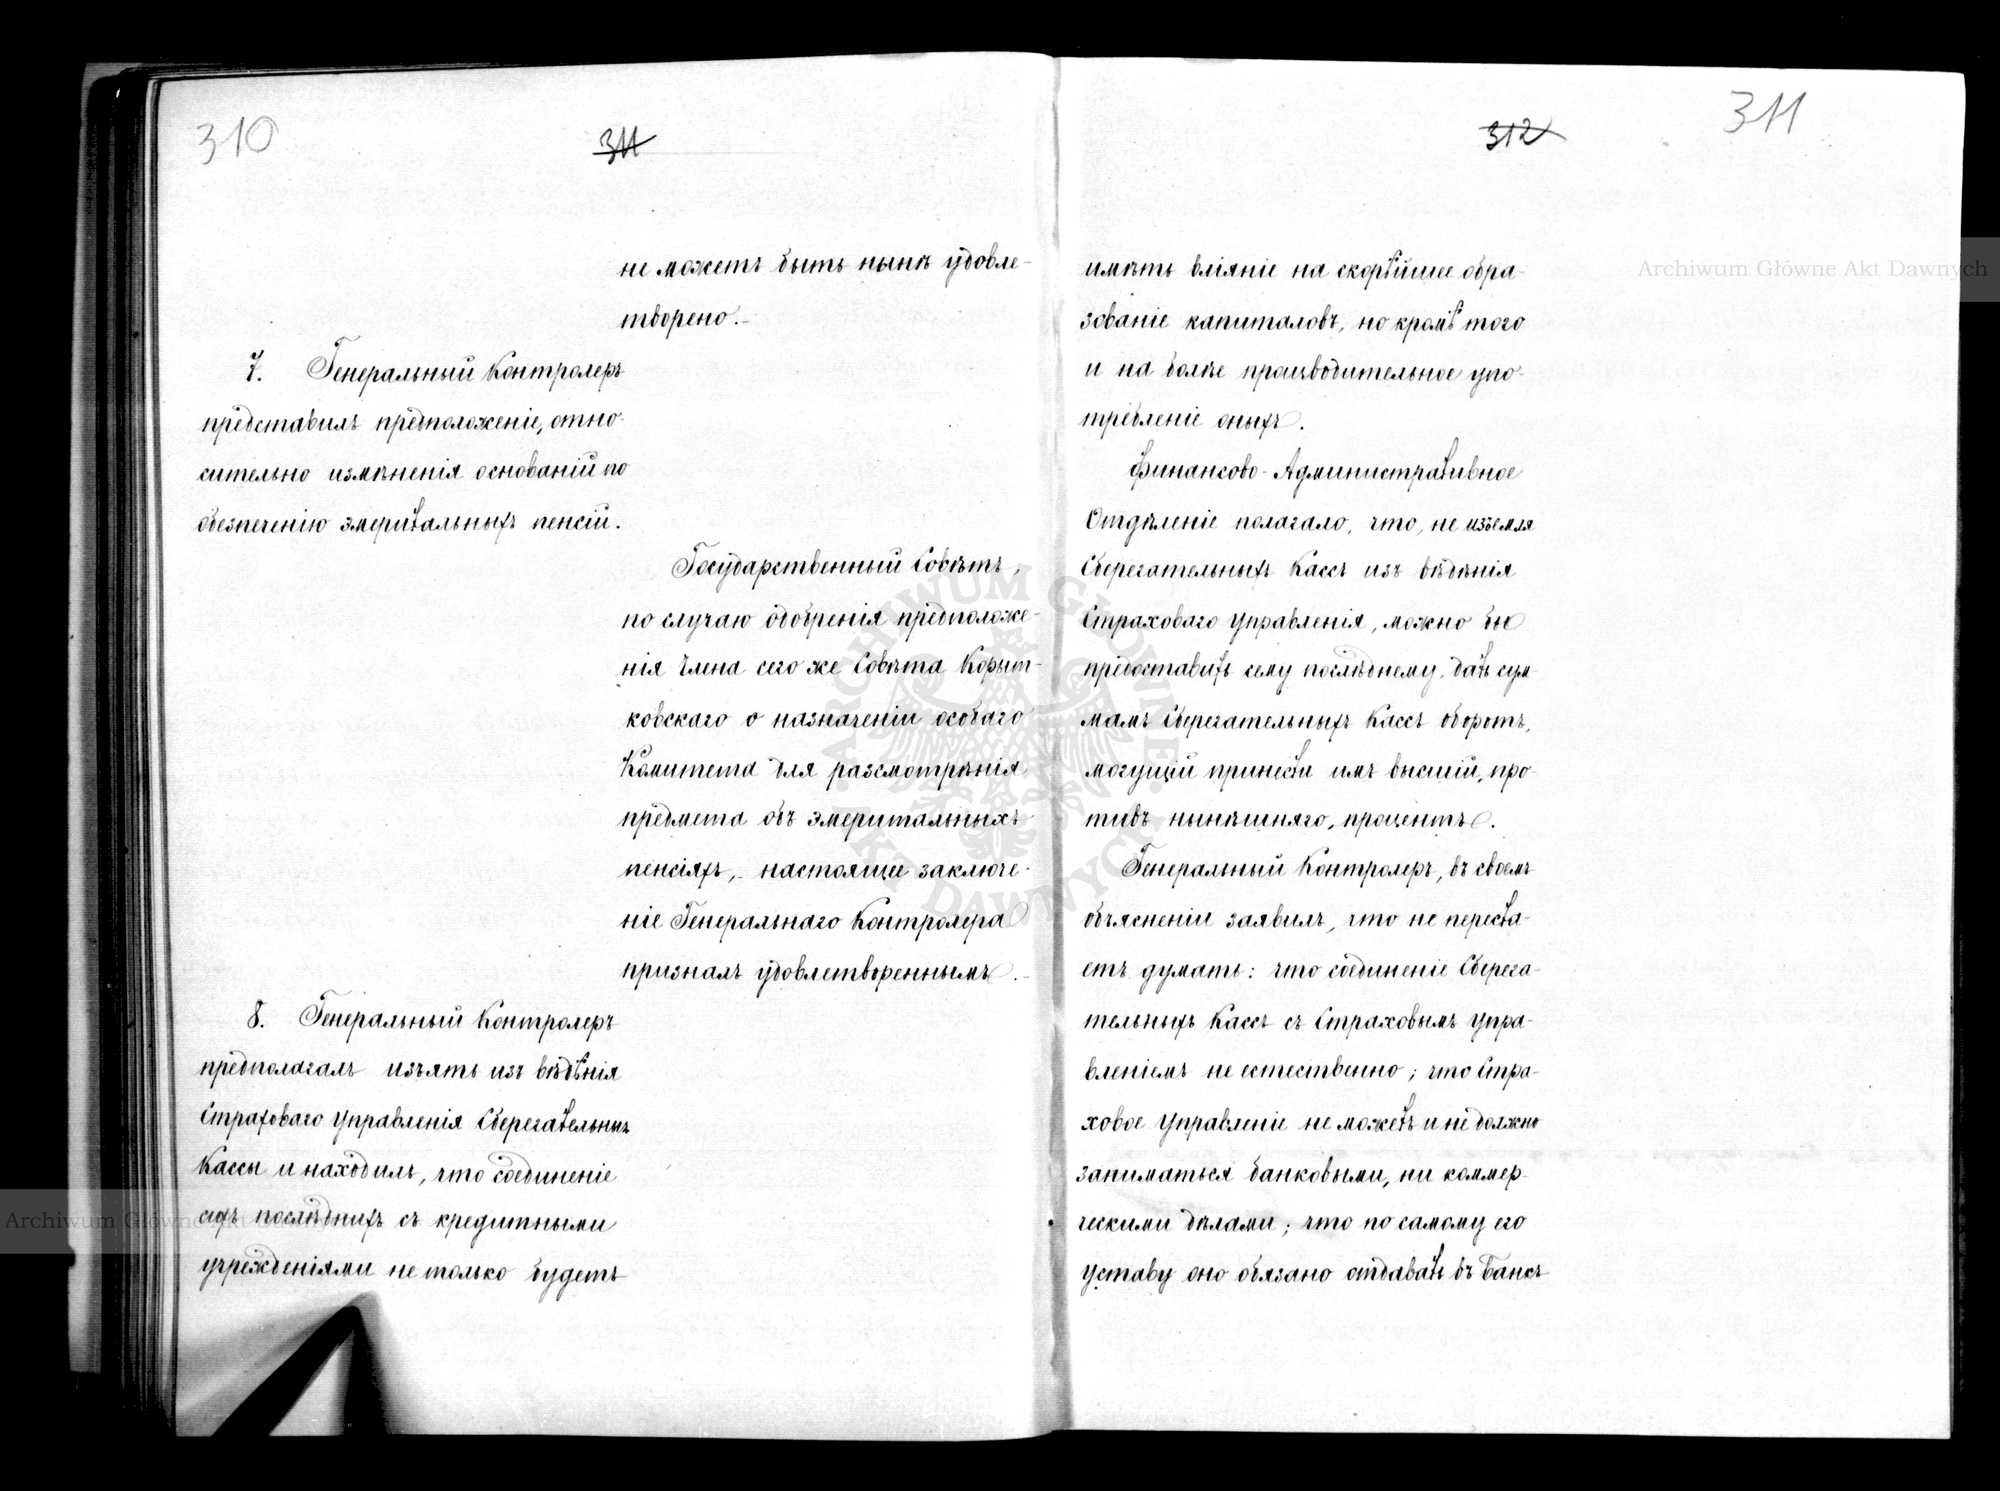 310
311
не можетъ быть нынѣ удовле-
творено.-
7. Генеральный Контролеръ
представилъ предположеніе, отно-
сительно измѣненія основаній по
обезпеченію эмеритальныхъ пенсій.
Государственный Совѣтъ,
по случаю одобренія предположе-
нія Члена сего же Совѣта Корыт-
ковскаго о назначеніи особаго
Комитета для разсмотрѣнія
предмета объ эмеритальныхъ
пенсіяхъ,- настоящее заключе-
ніе Генеральнаго Контролера
призналъ удовлетвореннымъ.-
8. Генеральный Контролеръ
предполагалъ изъять изъ вѣдѣнія
Страховаго Управленія Сберегательныя
Кассы и находилъ, что соединеніе
сихъ послѣднихъ съ кредитными
учрежденіями не только будетъ
312
311
имѣть вліяніе на скорѣйшее обра-
зованіе капиталовъ, но кромѣ того
и на болѣе производительное упо-
требленіе оныхъ.
Финансово-Административное
Отдѣленіе полагало, что, не изъемля
Сберегательныхъ Кассъ изъ вѣдѣнія
Страховаго Управленія, можно бы
предоставить сему послѣднему, дать сум-
мамъ Сберегательныхъ Кассъ оборотъ,
могущій принести имъ высшій, про-
тивъ нынѣшняго, процентъ.
Генеральный Контролеръ, въ своемъ
объясненіи заявилъ, что не переста-
етъ думать: что соединеніе Сберега-
тельныхъ Кассъ съ Страховымъ Упра-
вленіемъ не естественно; что Стра-
ховое Управленіе не можетъ и не должно
заниматься банковыми, ни коммер-
ческими дѣлами; что по самому его
уставу оно обязано отдавать въ Банкъ
Archiwum Główne Akt Dawnych
Archiwum Główne Akt Dawnych
ARCHIWUM GŁÓWNE AKT DAWNYCH